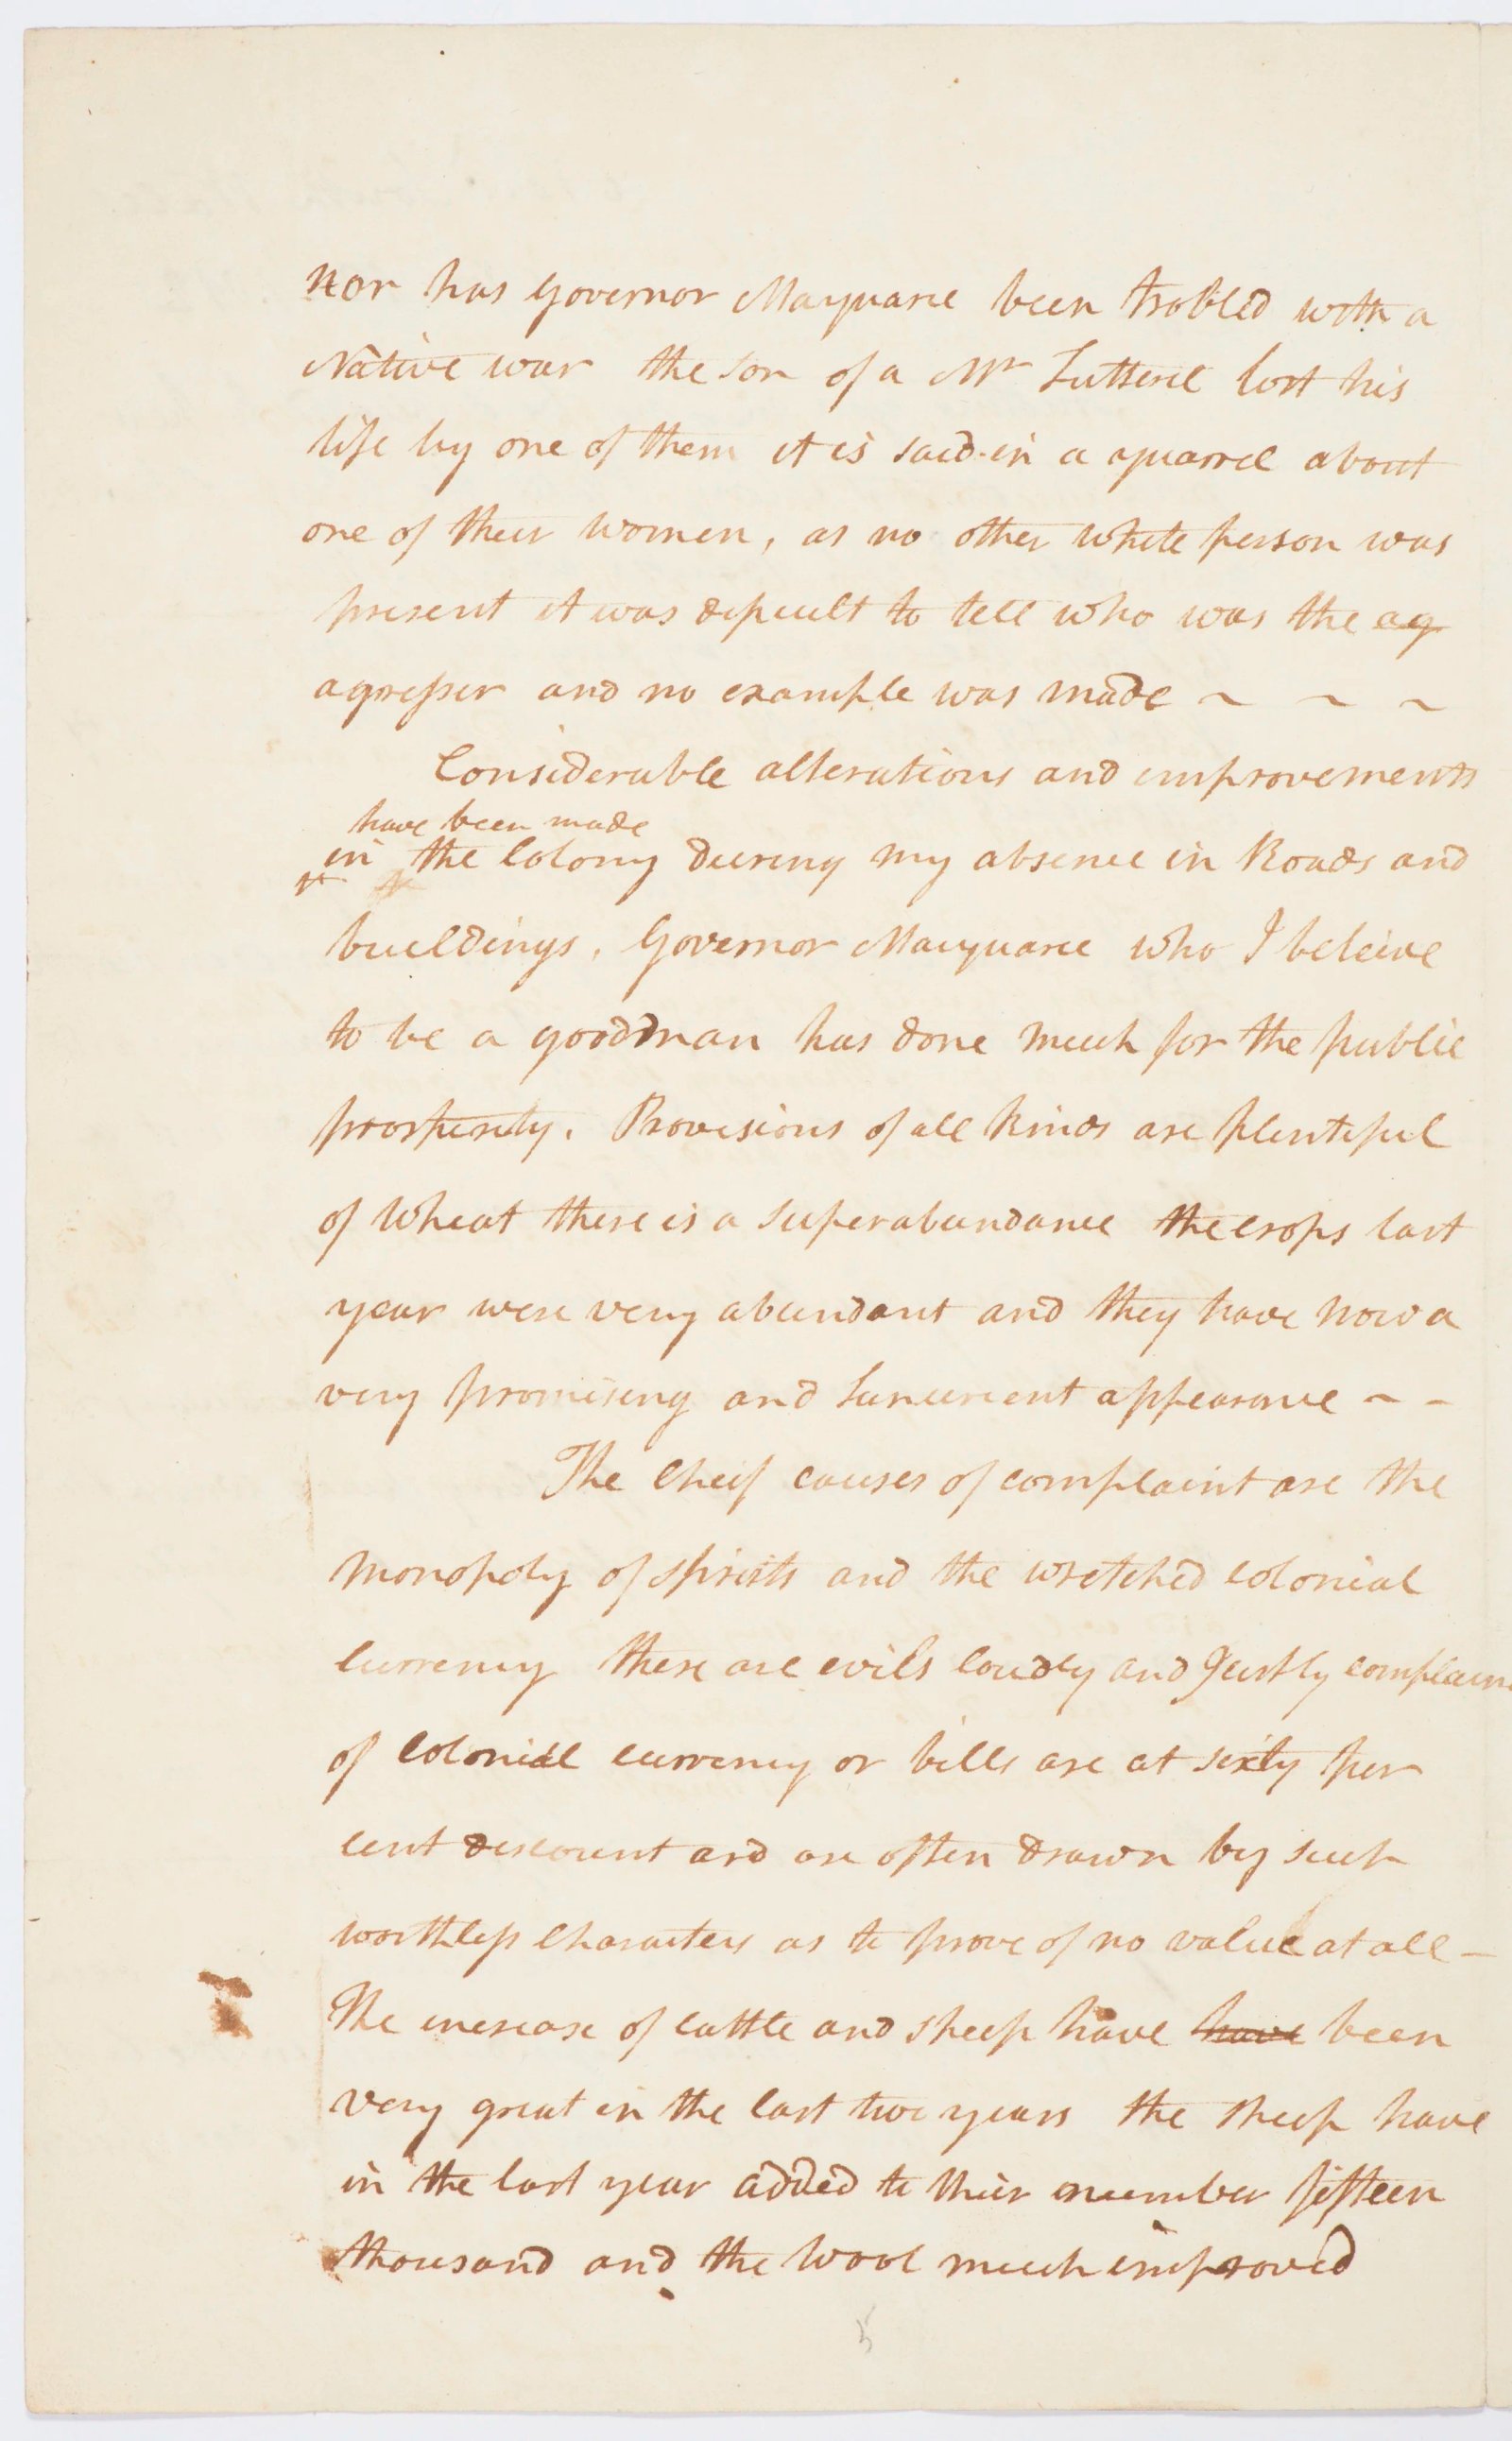 nor has Governor Macquarie been trobled with a
Native war the son of a Mr Lutterel lost his
life by one of them it is said in a quarrel about
one of their women, as no other white person was
present it was dificult to tell who was the ag
agresser and no example was made ~ ~ ~
Considerable alterations and improvements
have been made
in the Colony during my absence in Roads and
buildings. Governor Macquarie who I beleive
to be a good man has done much for the public
prosperity. Provisions of all kinds are plentiful
of wheat there is a superabundance the crops last
year were very abundant and they have now a
very promising and luxurient appearance ~ -
The cheif causes of complaint are the
monopoly of spirits and the wretched colonial
currency these are evils loudly and justly complain
of colonial currency or bills are at sixty per
cent discount and are often drawn by such
worthless characters as to prove of no value at all -
The increase of cattle and sheep have have been
very great in the last two years the sheep have
in the last year added to their number fifteen
thousand and the wool much improved
5